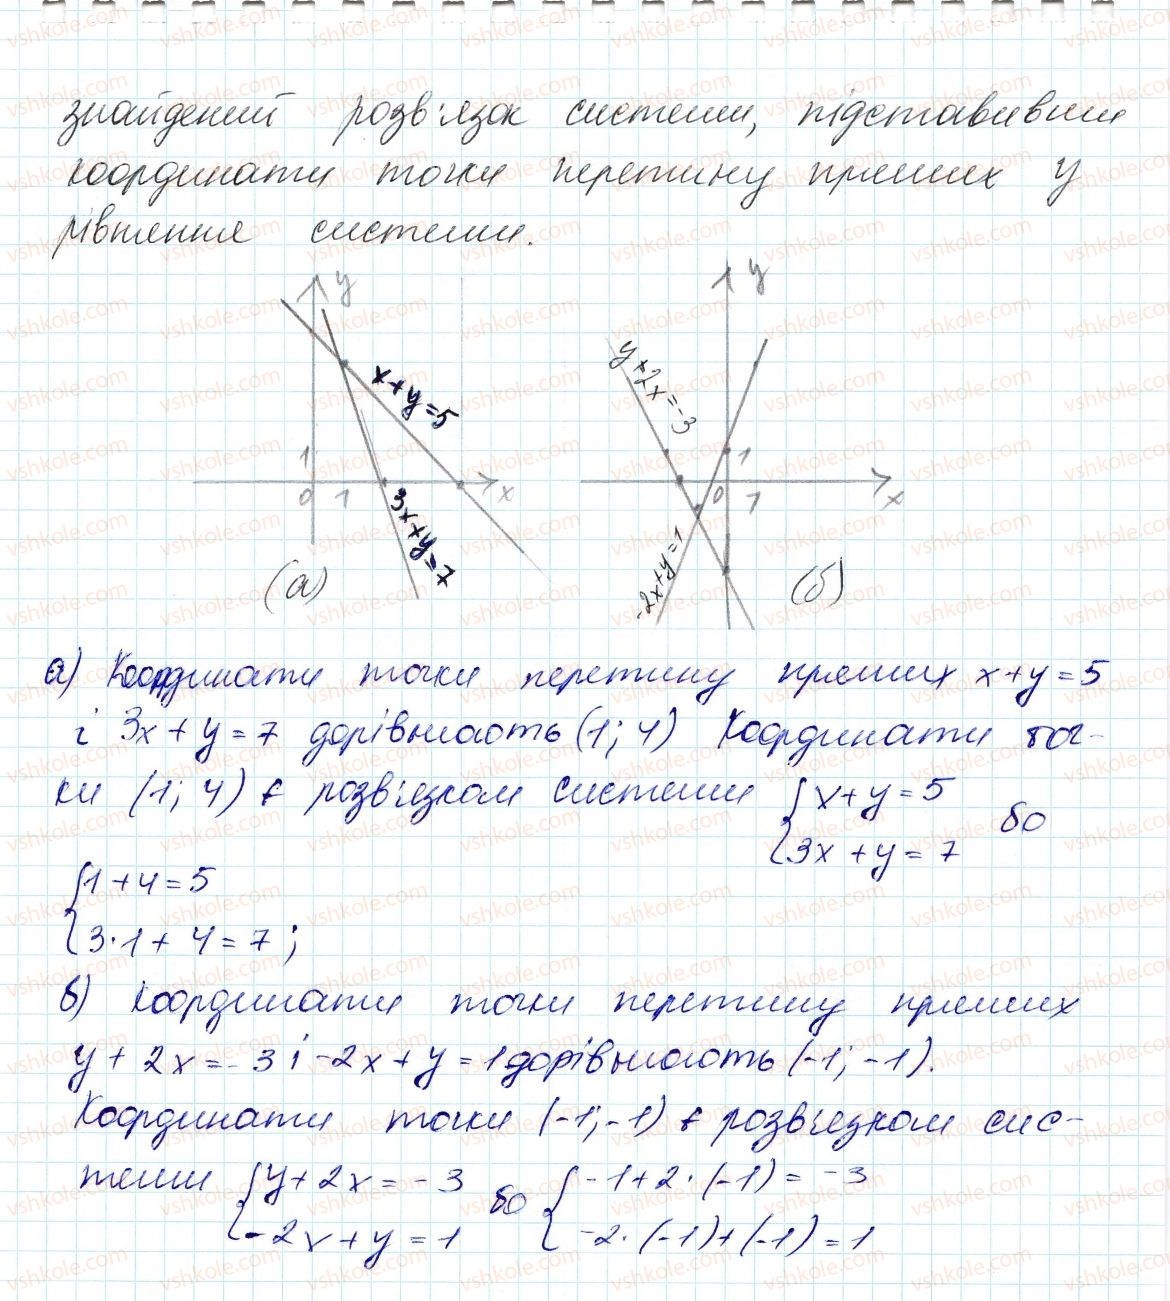 знайдений розв'язок системи, підставивши
координати точки перетину прямих у
рівняння системи.
y
x+y=5
1
0 1 x
3x+y=7
(а)
y
y+2x=-3
1
0 1 x
-2x+y=1
(б)
а) Координати точки перетину прямих x+y=5
і 3x+y=7 дорівнюють (1; 4) Координати точ-
ки (1; 4) є розв'язком системи { x+y=5
3x+y=7 бо
{ 1+4=5
3·1+4=7;
б) координати точки перетину прямих
y+2x=-3 і -2x+y=1 дорівнюють (-1; -1).
Координати точки (-1; -1) є розв'язком сис-
теми { y+2x=-3
-2x+y=1 бо { -1+2·(-1)=-3
-2·(-1)+(-1)=1
vshkole.com